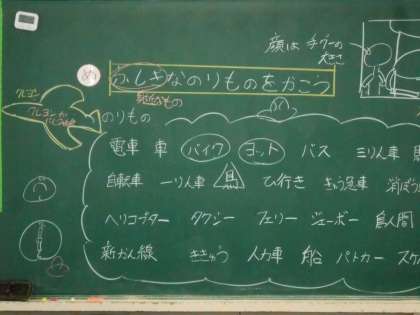 顔は チグーの
大きさ
め
ふしぎなのりものをかこう
クレヨン
のりもの
電車 車 バイク ヨット バス 三りん車
自転車 一りん車 鳥 ひ行き きゅう急車 消ぼう
ヘリコプター タクシー フェリー ジェーボー 鳥人間
新かん線 ききゅう 人力車 船 パトカー スケ